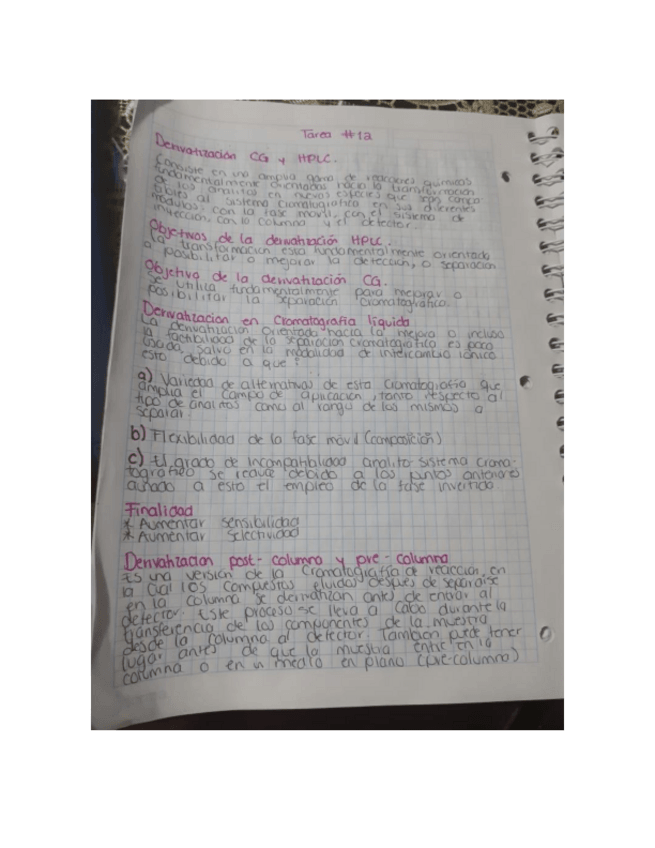 Tarea #12
Derivatización CG y HPLC.
Consiste en una amplia gama de reacciones químicas
fundamentalmente orientadas hacia la transformación
de los analitos en nuevas especies que sean
ables al sistema cromatografico en sus diferentes
modulos: con la fase movil, con el sistema de
inyección, con la columna y el detector.
Objetivos de la derivatización HPLC.
La transformación esta fundamentalmente orientada
a posibilitar o mejorar la detección, o separación
Objetivo de la derivatización CG.
Se utiliza fundamentalmente para mejorar o
posibilitar la separación cromatografica.
Derivatización en Cromatografía liquida
La derivatización orientada hacia la mejora o incluso
la factibilidad de la separación cromatografica es poco
usada, salvo en la modalidad de intercambio iónico
esto debido a que:
a) Variedad de alternativas de esta cromatografía que
amplia el campo de aplicación, tanto respecto al
tipo de analitos como al rango de los mismos a
separar.
b) Flexibilidad de la fase movil (composición)
c) El grado de incompatibilidad analito-sistema croma-
tografico se reduce debido a los puntos anteriores
aunado a esto el empleo de la fase invertida
Finalidad
* Aumentar sensibilidad
* Aumentar selectividad
Derivatización post-columna y pre-columna
Es una versión de la cromatografía de reacción, en
la cual los compuestos eluidos después de separarse
en la columna se derivatizan antes de entrar al
detector. Este proceso se lleva a cabo durante la
transferencia de los componentes de la muestra
desde la columna al detector. Tambien puede tener
lugar antes de que la muestra entre en la
columna o en un medio en plano (pre-columna)